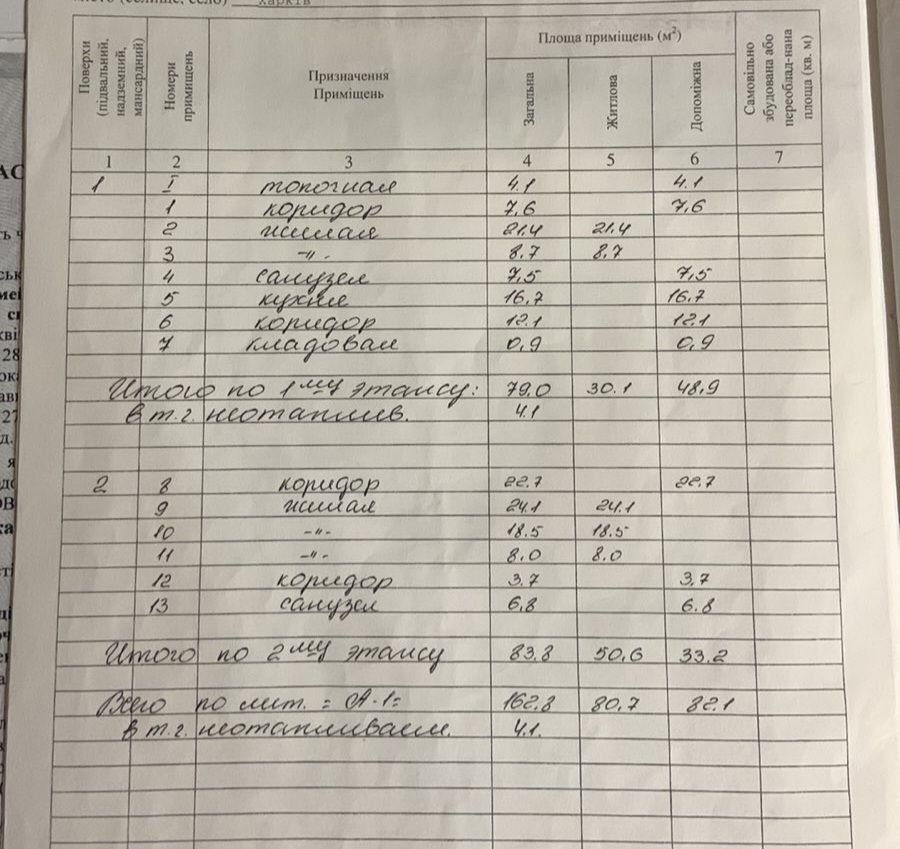 місто (селище, село) харків
Поверхи (підвальний, надземний, мансардний) Номери примищень Призначення Приміщень Площа приміщень (м²) Загальна Житлова Допоміжна Самовільно збудована або переоблад-нана площа (кв. м)
1 2 3 4 5 6 7
1 I топочная 4.1 4.1
1 коридор 7,6 7,6
2 жилая 21.4 21.4
3 -"- 8.7 8,7
4 санузел 7,5 7,5
5 кухня 16,7 16,7
6 коридор 12.1 12.1
7 кладовая 0,9 0,9
Итого по 1му этажу: 79.0 30.1 48,9
в т.г. неотаплив. 4.1
2 8 коридор 22.7 22,7
9 жилая 24.1 24.1
10 -"- 18.5 18.5
11 -"- 8.0 8.0
12 коридор 3,7 3.7
13 санузел 6,8 6.8
Итого по 2му этажу 83,8 50,6 33.2
Всего по лит. = А-1= 162.8 80,7 82.1
в т.г. неотапливаем. 4.1.